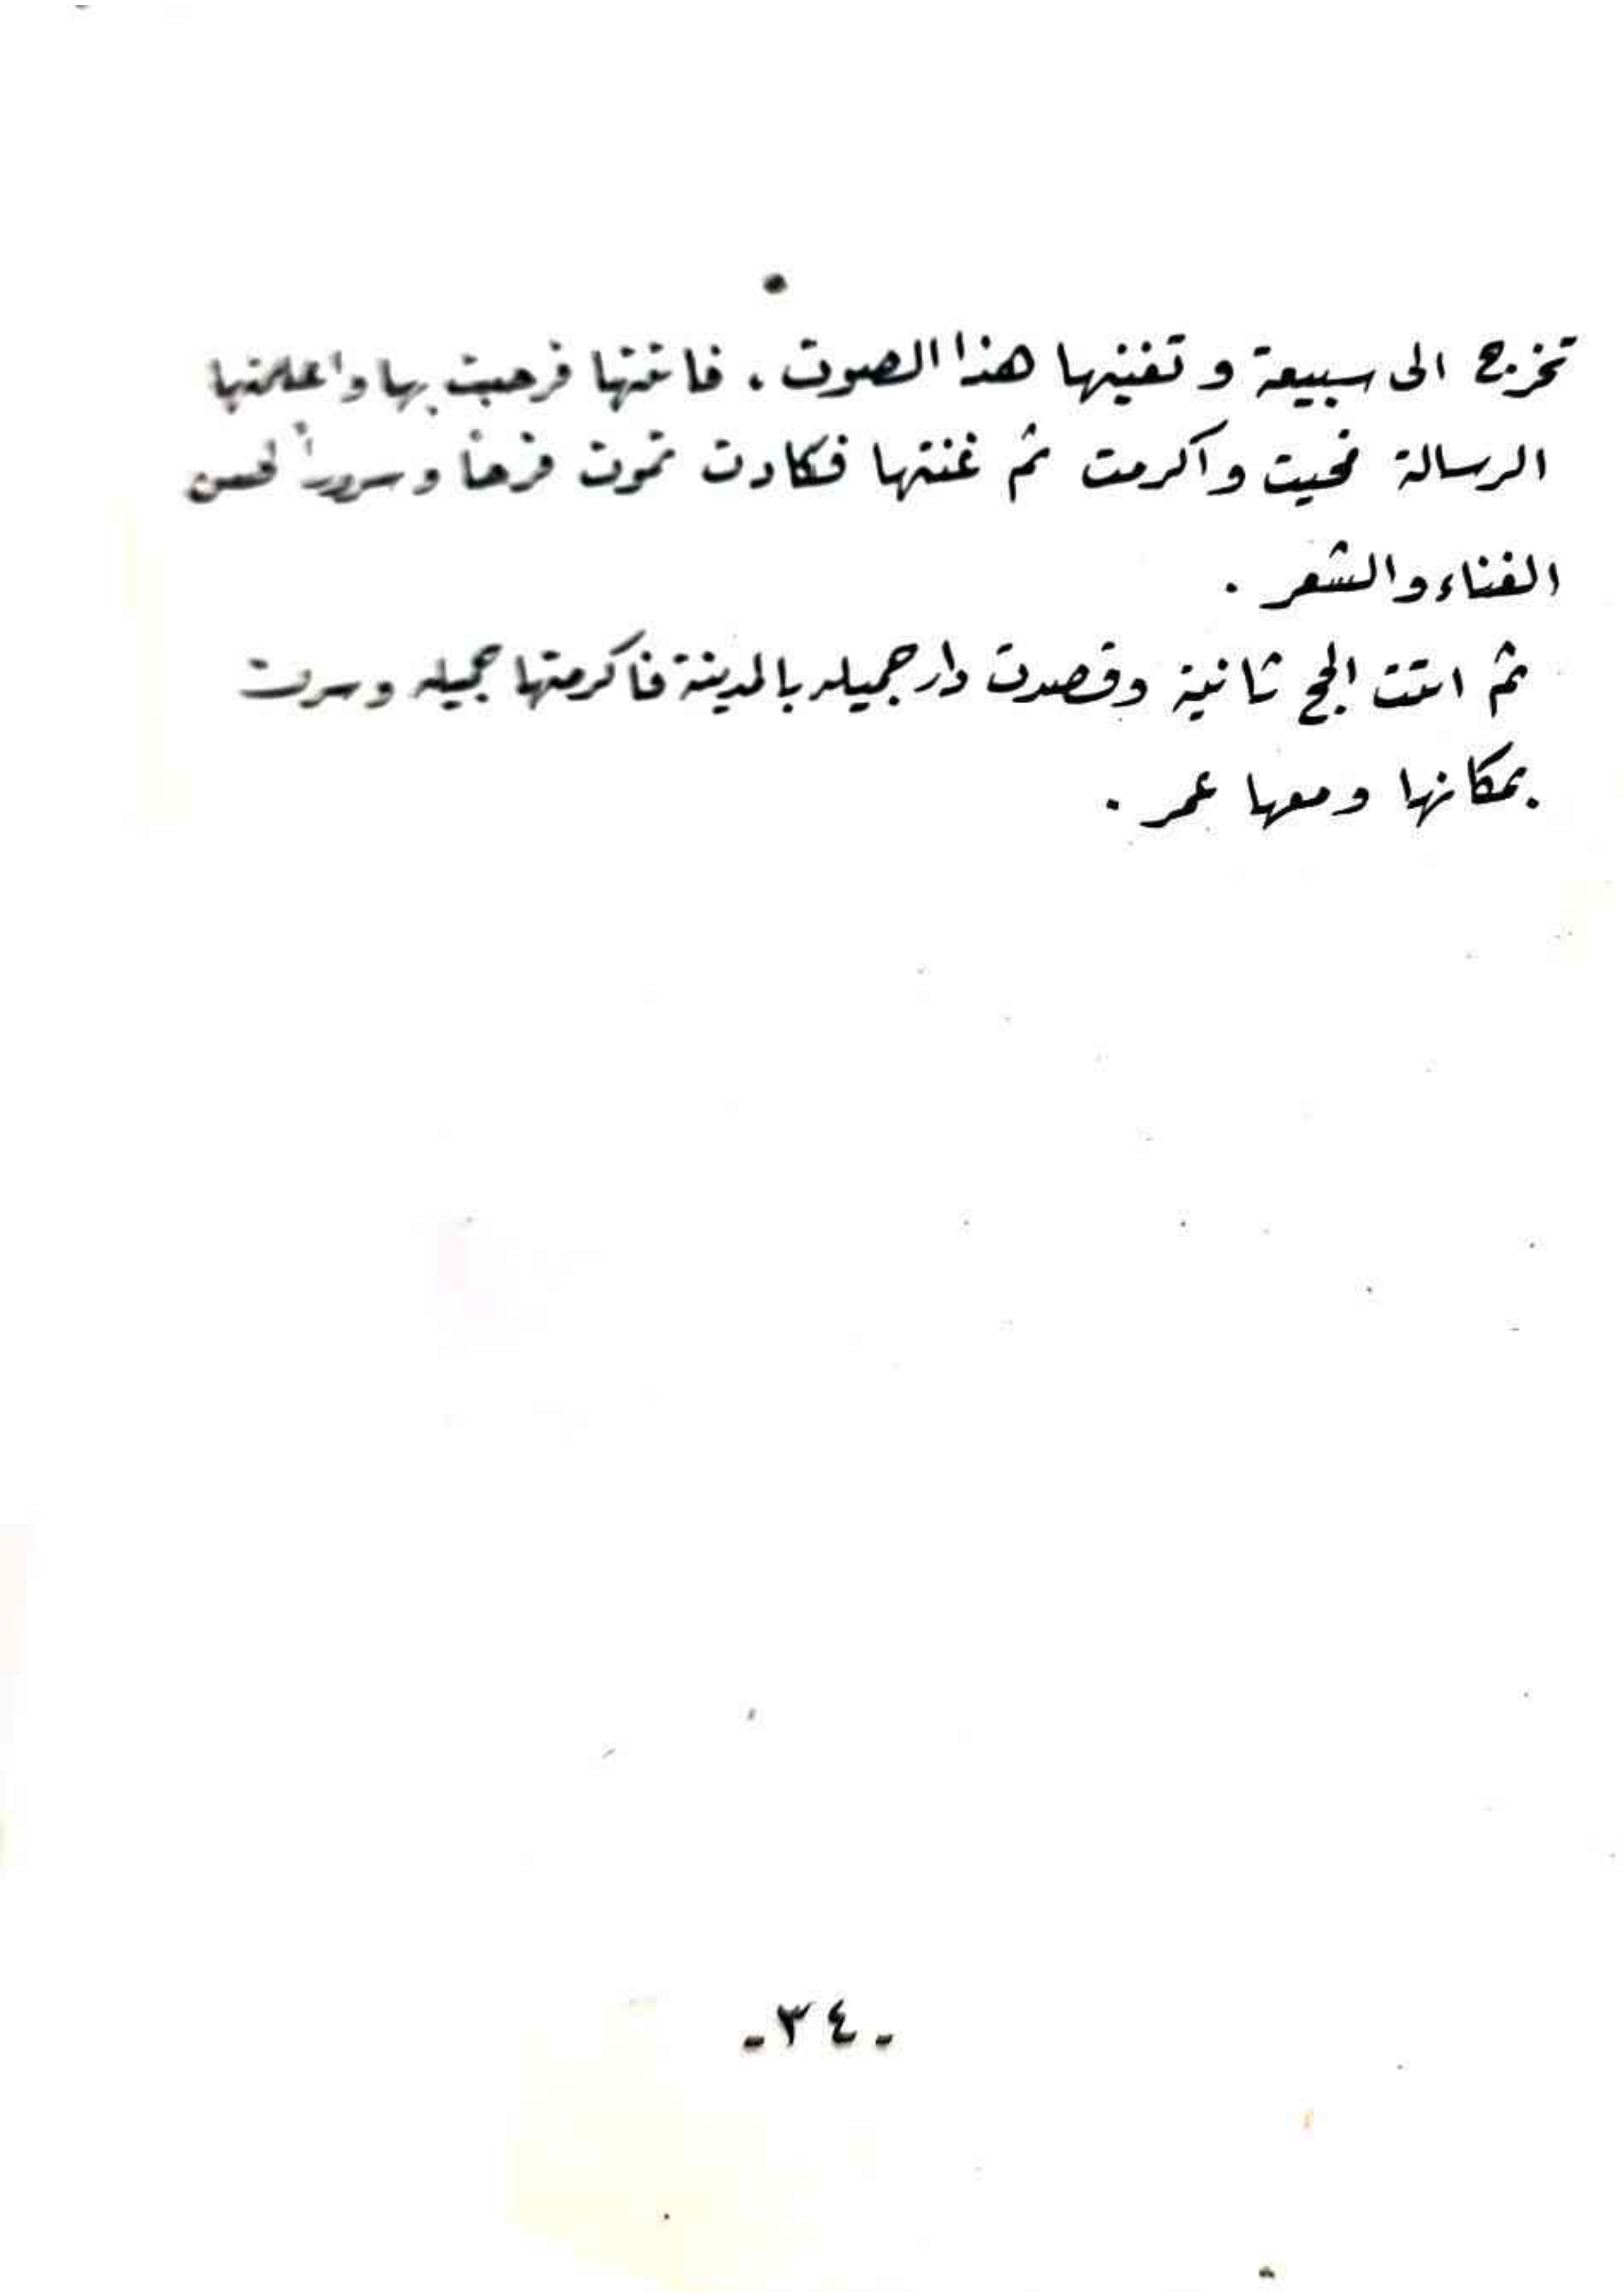 تخرج الى سبيعة و تغنيها هذا الصوت ، فاتتها فرحبت بها واعلمتها
الرسالة فحيت واكرمت ثم غنتها فكادت تموت فرحاً وسروراً لحسن
الغناء والشعر .
ثم اتت الحج ثانية وقصدت دار جميله بالمدينة فاكرمتها جميله وسرت
بمكانها ومعها عمر .
-٣٤-